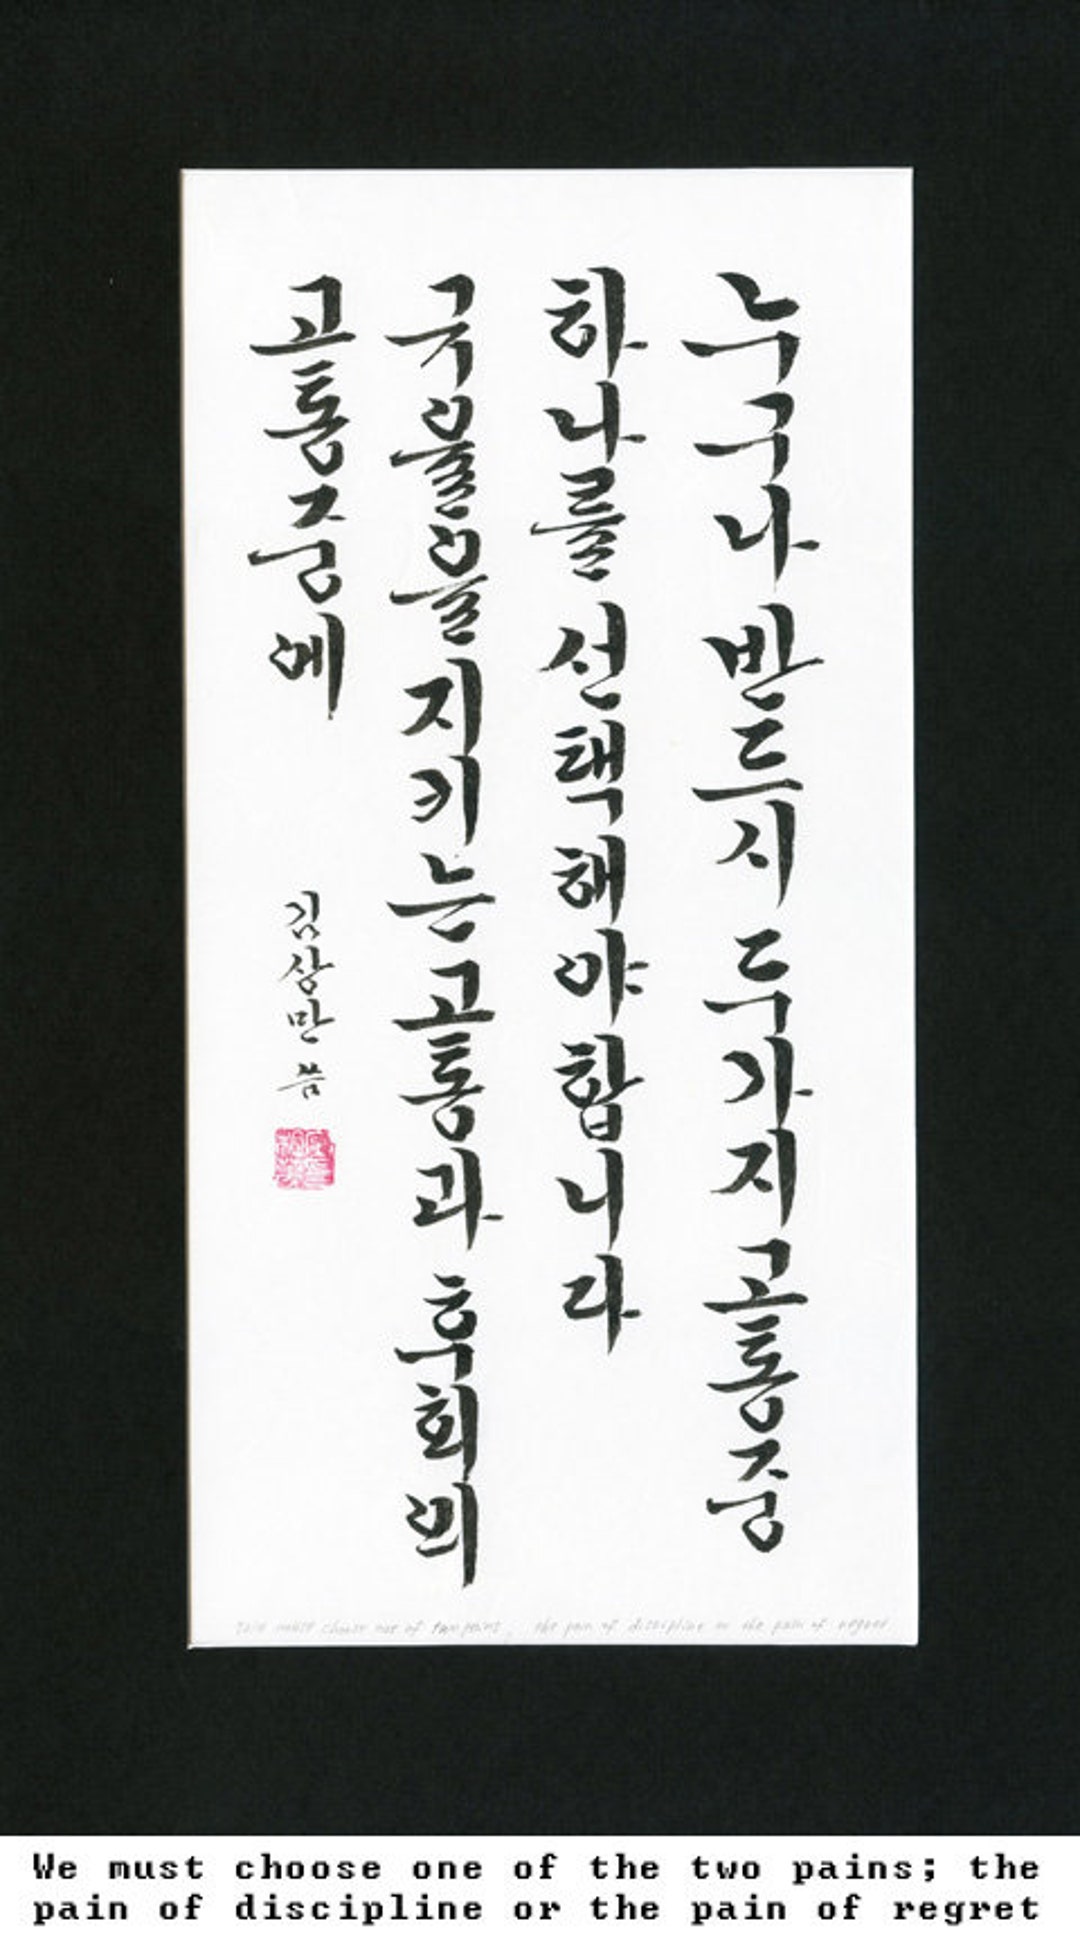 누구나 반드시 두가지 고통중
하나를 선택해야 합니다
규율을 지키는 고통과 후회의
고통중에
김상만 씀
We must choose one of two pains; the pain of discipline or the pain of regret
We must choose one of the two pains; the
pain of discipline or the pain of regret